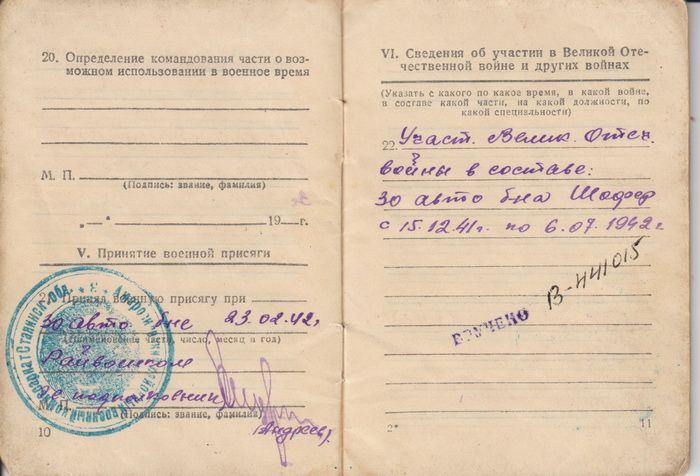 20. Определение командования части о воз-
можном использовании в военное время
М. П.
(Подпись: звание, фамилия)
„ — “ 19 — г.
V. Принятие военной присяги
Принял военную присягу при
30 авто бне 23.02.42г
(Наименование части, число, месяц и год)
Райвоенком
подполковник
(Подпись: звание, фамилия)
(Андреев).
10
VI. Сведения об участии в Великой Оте-
чественной войне и других войнах
(Указать с какого по какое время, в какой войне,
в составе какой части, на какой должности, по
какой специальности)
22. Участ. Велик. Отеч.
войны в составе:
30 авто бна Шофер
с 15.12.41г. по 6.07.1942г
ВРУЧЕНО
В-441015
2*
11